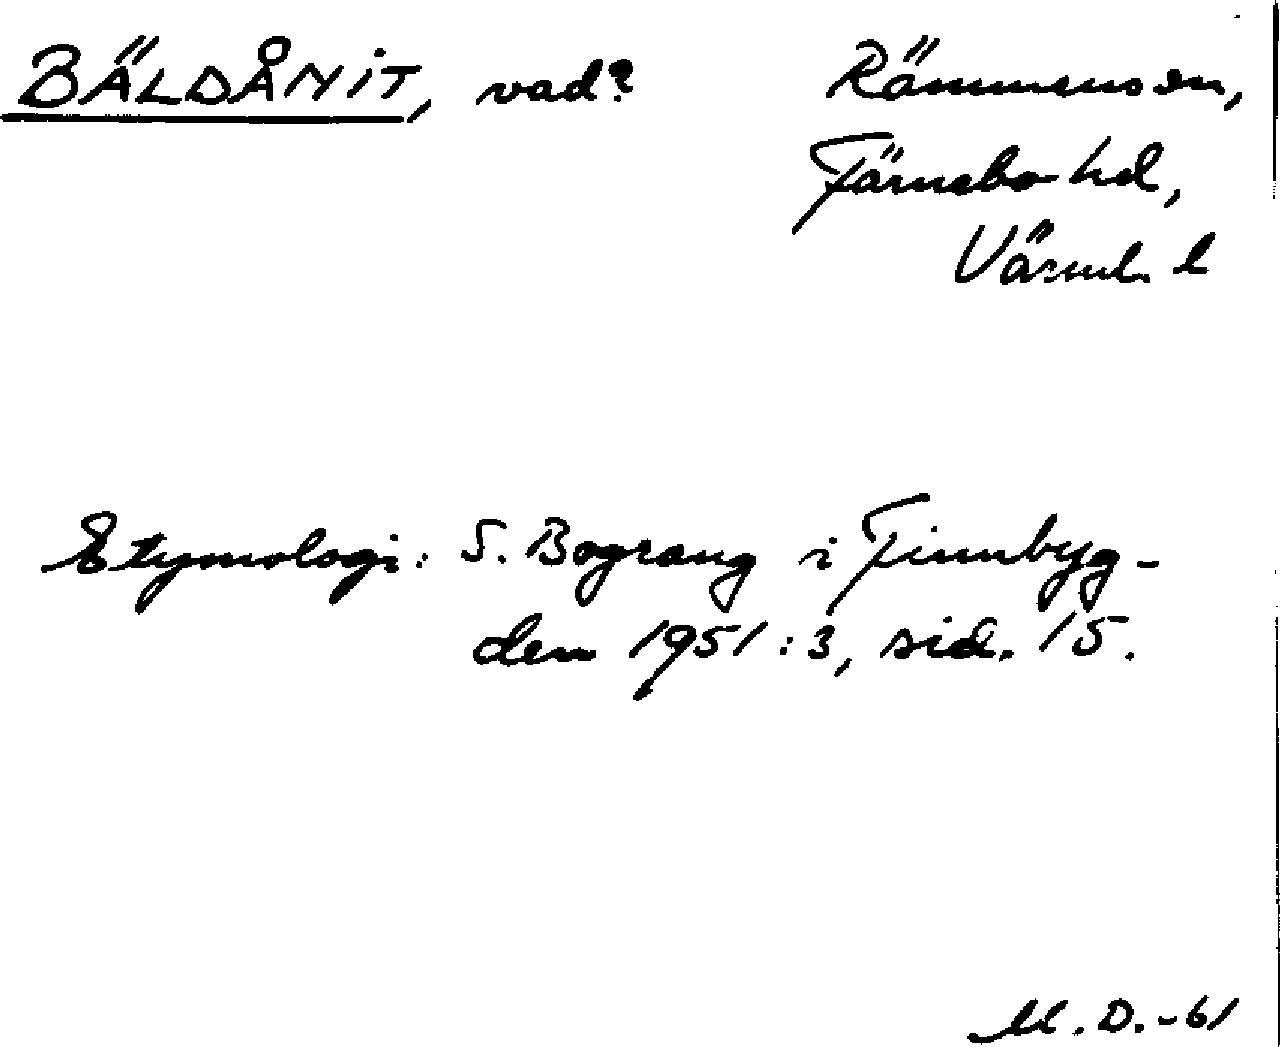 BÄLDÅNIT, vad? Rämmens sn,
Färnebo hd,
Värml. l
Etymologi: S. Bograng i Finnbyg-
den 1951:3, sid. 15.
M.D.-61